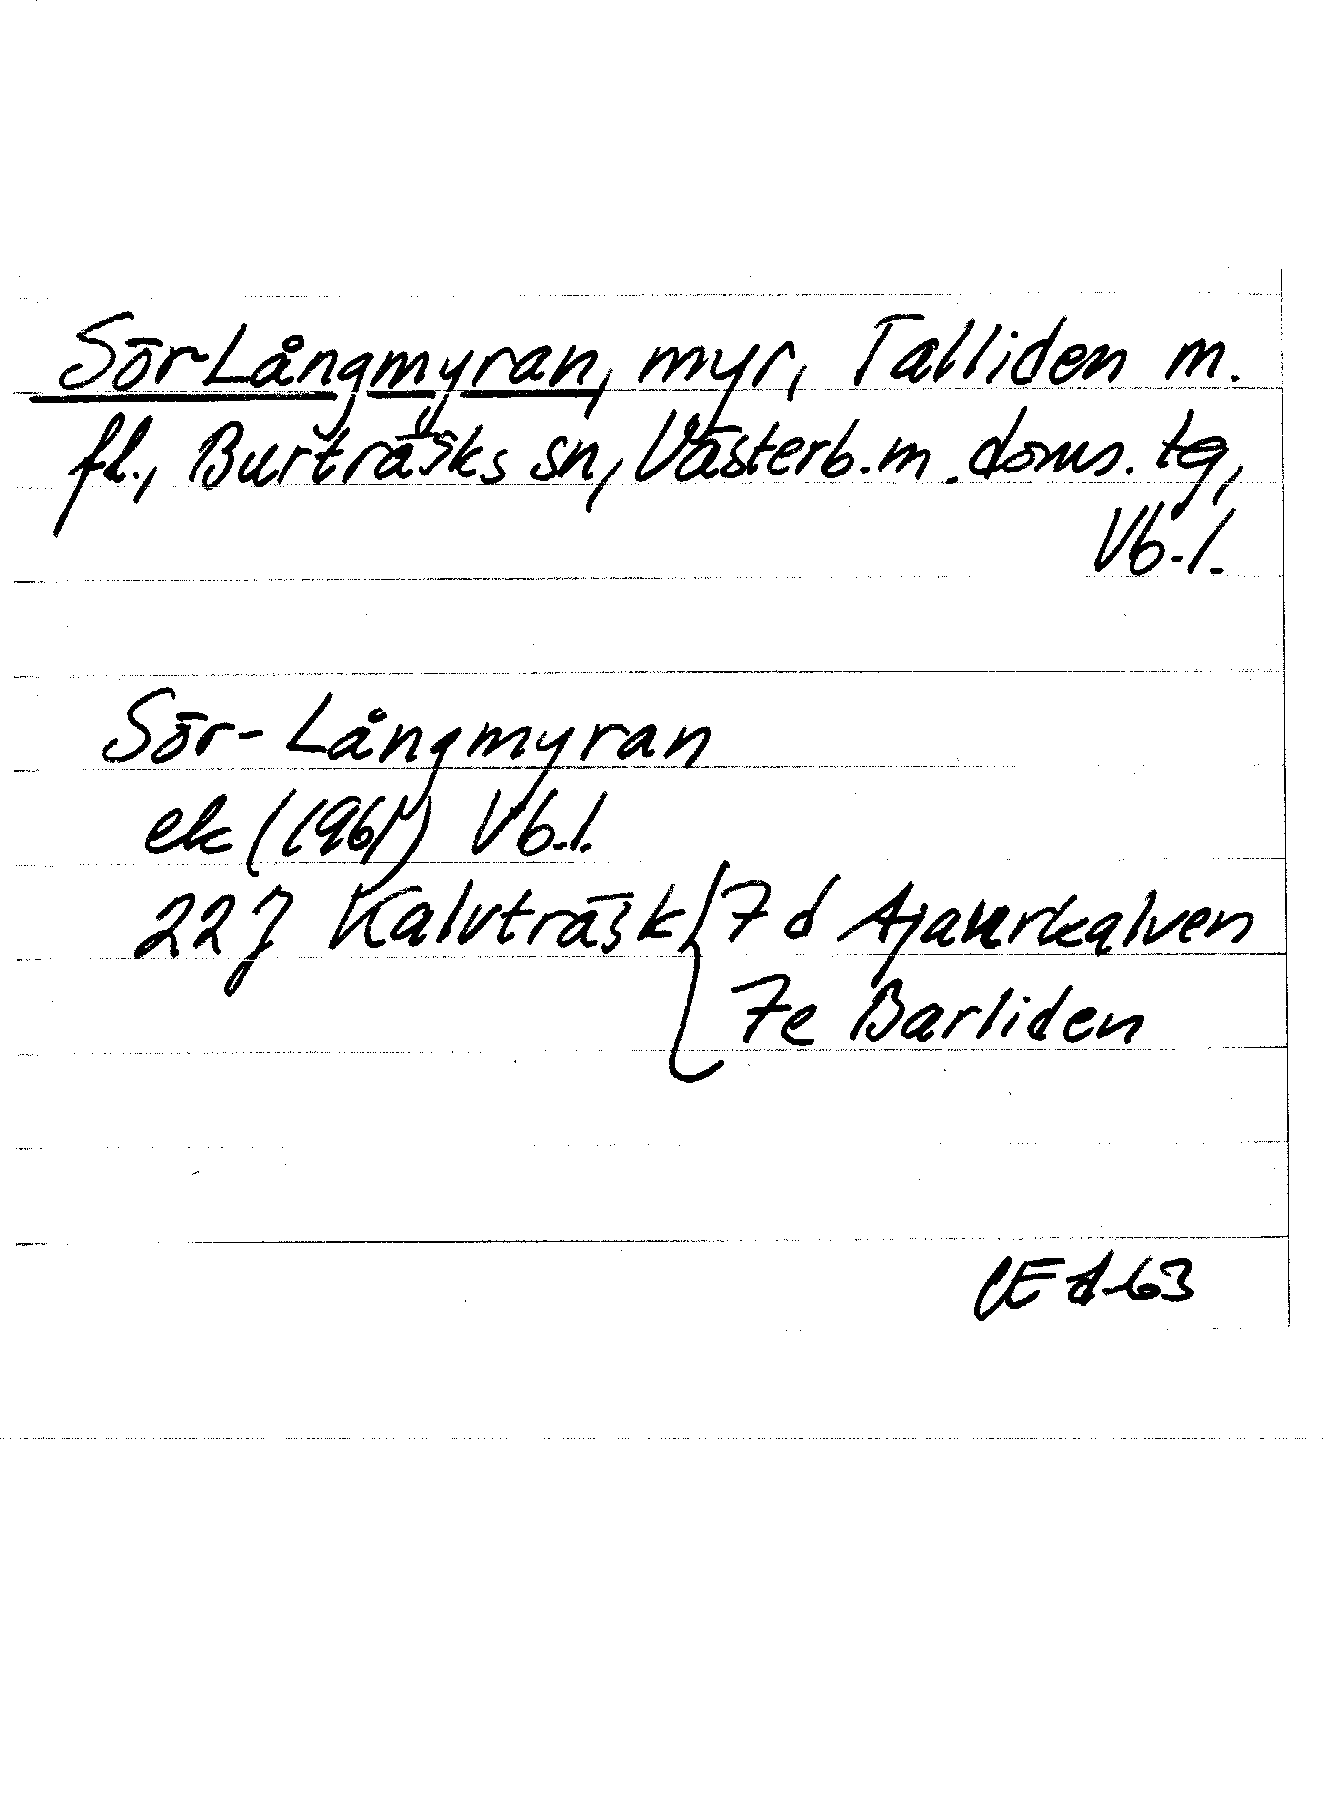 Sör-Långmyran, myr, Talliden m.
fl., Burträsks sn, Västerb.m. doms. tg,
Vb.l.
Sör-Långmyran
ek (1961) Vb.l.
22J Kalvträsk { 7d Ajaurkalven
7e Barliden
CEA-63